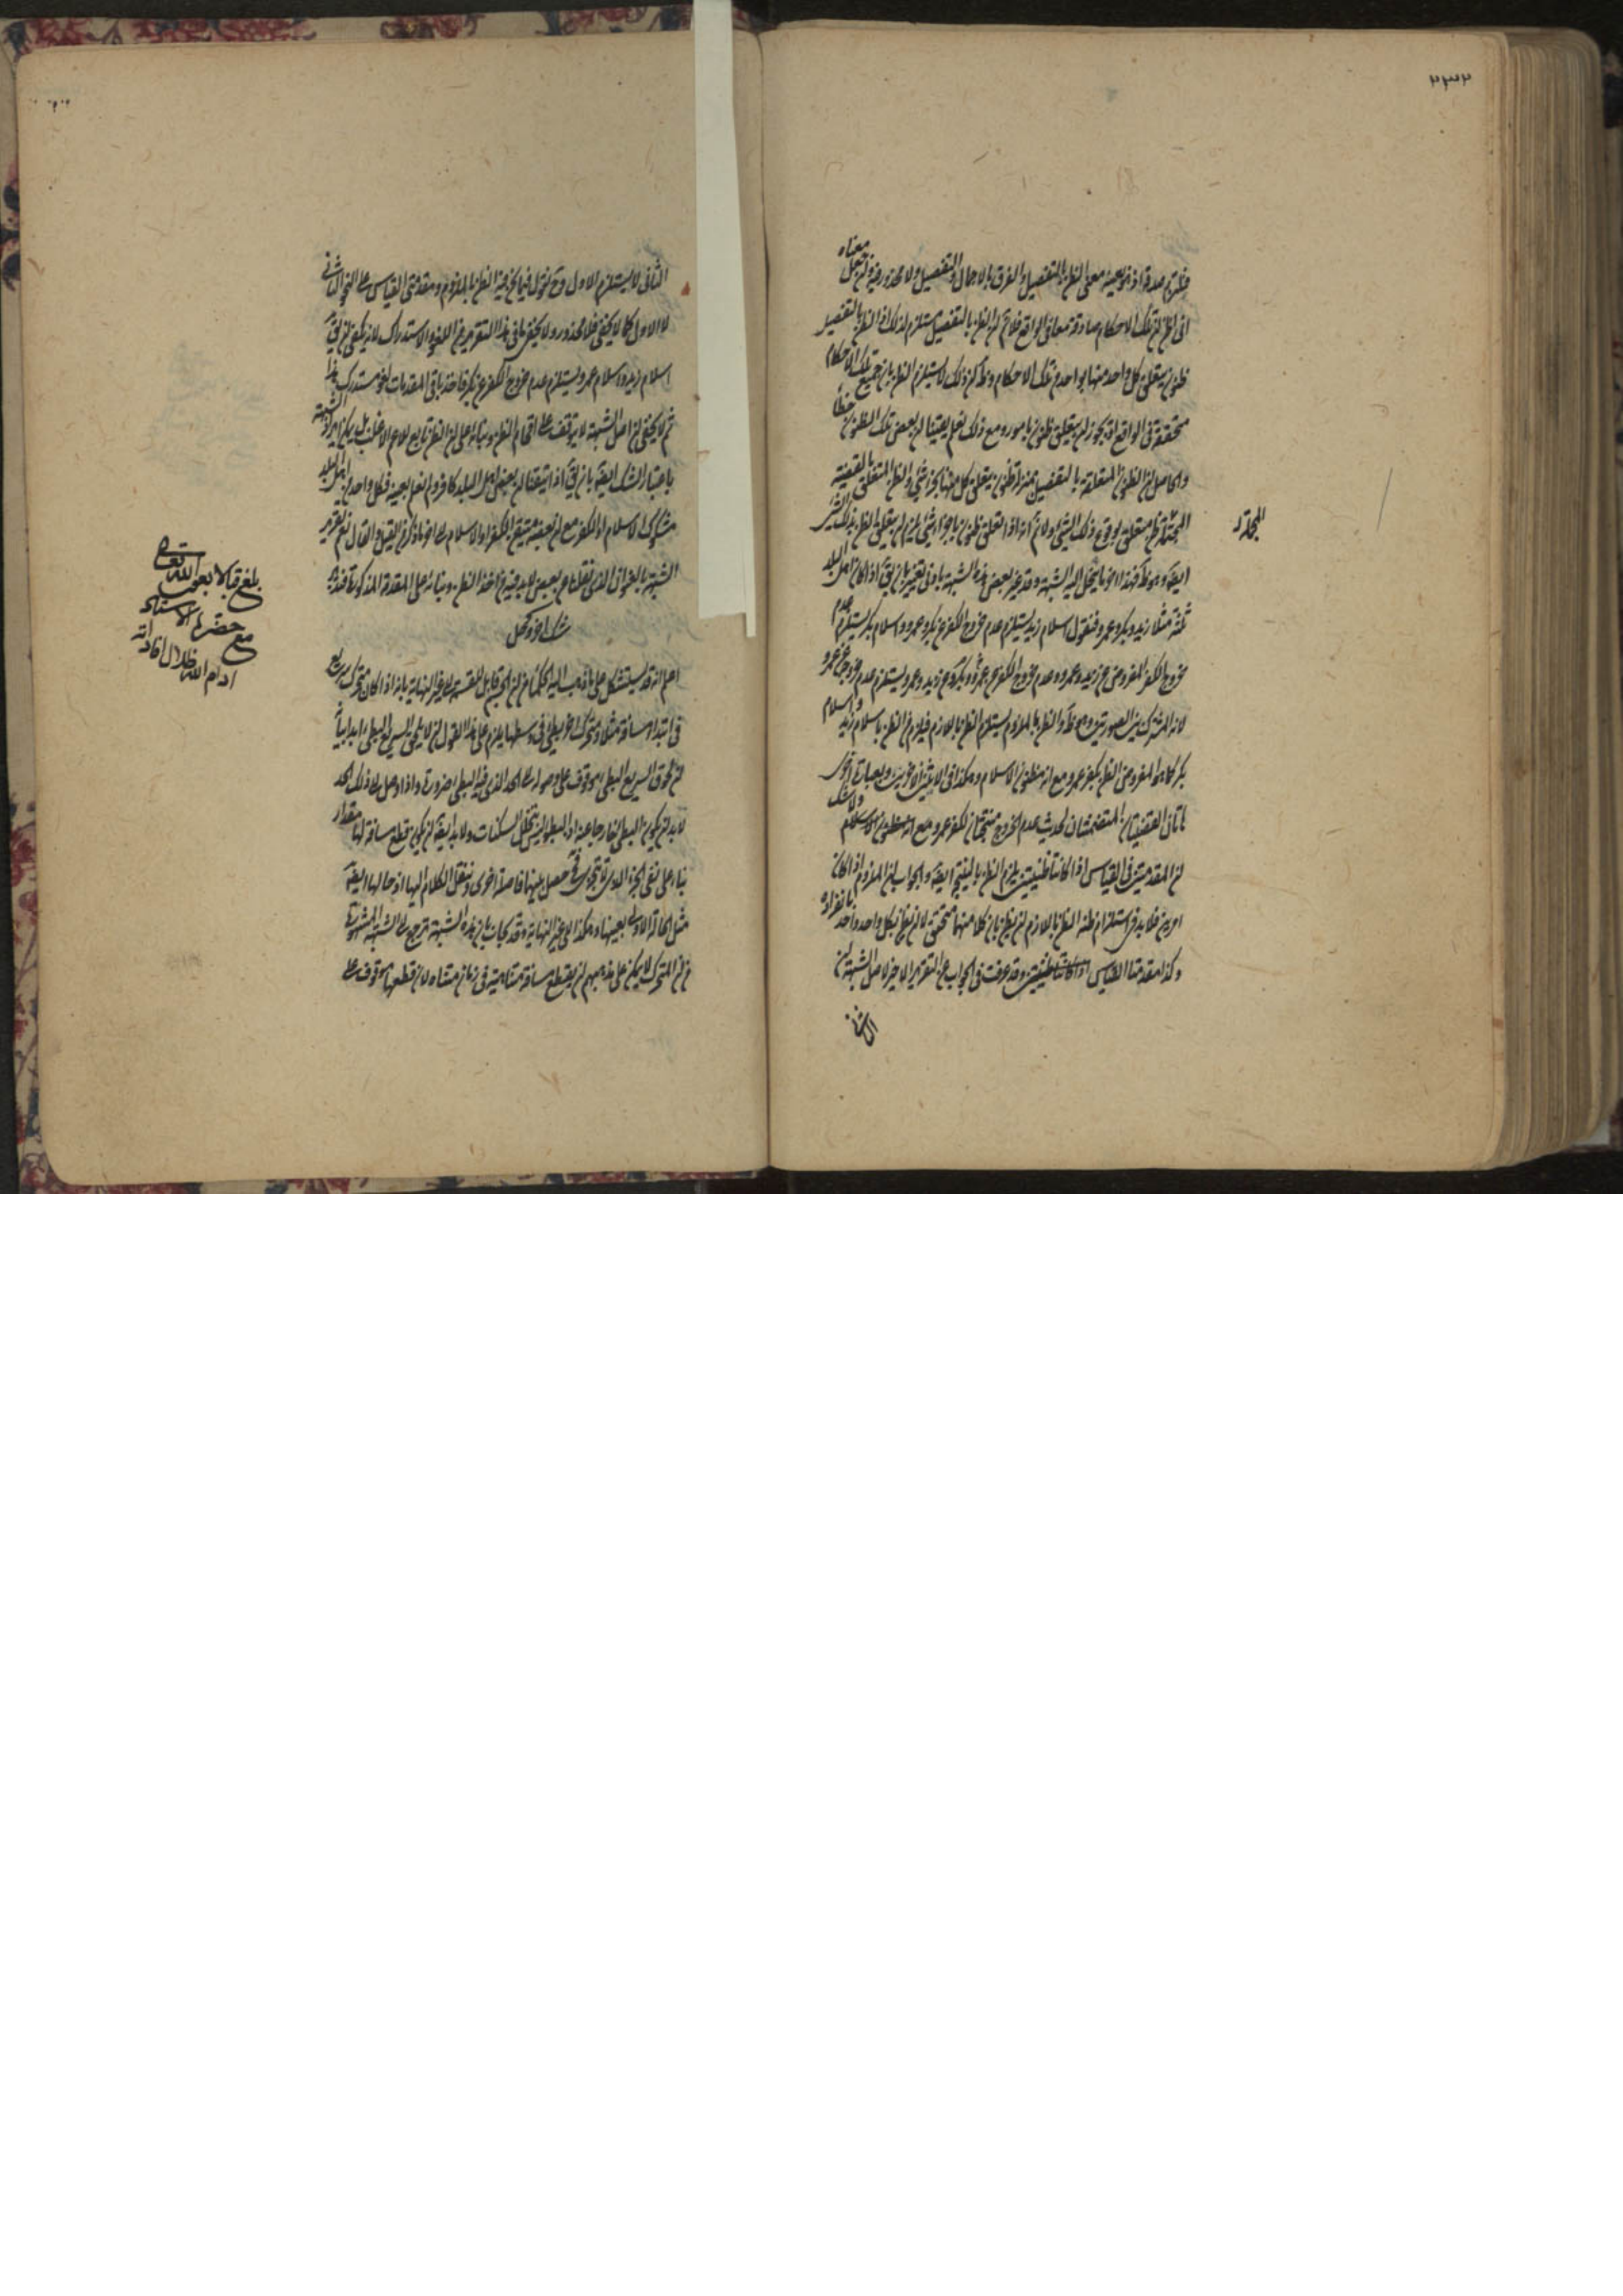 ٢٣٢
فظنون صدقها اذ هو بعينه معنى الظن بالتفصيل والفرق بالاجمال والتفصيل ولا محذور فيه وان جعل معناه
انى اظن ان تلك الاحكام صادقة معا فى الواقع فلا نم ان الظن بالتفصيل يستلزم لذلك اذ الظن بالتفصيل
ظنون يتعلق كل واحد منها بواحد من تلك الاحكام وظ ان ذلك لا يستلزم الظن بان جميع تلك الاحكام
متحققة فى الواقع اذ يجوز ان يتعلق ظنون بامور ومع ذلك نعلم يقينا ان بعض تلك الظنون خطأ
والحاصل ان الظنون المتعلقة بالتفصيل بمنزلة ظنون يتعلق كل منها بجزء شئ والظن المتعلق بالقضية
المجملة ظن متعلق بوقوع ذلك الشئ ولا نم انه اذا تعلق ظنون باجزاء شئ يلزم ان يتعلق الظن بذلك الشئ
المجملة
ايضا وهو ظ فهذا ما يخل اليه الشبهة وقد غير بعض هذه الشبهة بادنى تغيير بان يق اذا كان اهل البلد
ثلثة مثلا زيد وبكر وعمرو فنقول اسلام زيد يستلزم عدم خروج الكفر عن بكر وعمرو واسلام بكر يستلزم عدم
خروج الكفر المفروض عن زيد وعمرو وعدم خروج الكفر عن عمرو وبكر وعن زيد وعمرو يستلزم عدم خروجه عن عمرو
لانه المشترك بين الصورتين وهو ظ والظن بالملزوم يستلزم الظن باللازم فيلزم من الظن باسلام زيد واسلام
بكر كما هو المفروض الظن بكفر عمرو مع انه مظنون الاسلام وهكذا فى الاثنين الاخرين وبعبارة اخرى
هاتان القضيتان المتضمنتان لحديث عدم الخروج منتجتان لكفر عمرو مع انه مظنون الاسلام ولا شك
ان المقدمتين فى القياس اذا كانتا ظنيتين يلزم الظن بالنتيجة ايضا والجواب ان الملزوم اذا كان
امرين فلا بد فى استلزام ظنه الظن باللازم ان يظن بان كلا منهما متحقق لا ان يظن بكل واحد واحد بانفراده
وكذا مقدمتا القياس اذا كانتا ظنيتين وقد عرفت فى الجواب عن التقرير الاخير لاصل الشبهة ان
الثانى
الثانى لا يستلزم الاول وح نقول فيما نحن فيه الظن بالملزوم ومقدمتى القياس على النحو الثانى
لا الاول كما لا يخفى فلا محذور ولا يخفى ما فى هذا التقرير من اللغو والاستدراك لانه يكفى ان يق
اسلام زيد واسلام عمرو يستلزم عدم خروج الكفر عن بكر فاخذ باقى المقدمات لغو مستدرك هذا
ثم لا يخفى ان اصل الشبهة لا يتوقف على اقحام الظن وبنائه على ان الظن تابع للاعم الاغلب بل يمكن ايراد الشبهة
باعتبار الشك ايضا بان يق اذا تيقنا ان بعض اهل البلد كافر ولم نعلم بعينه فكل واحد من اهل البلد
مشكوك الاسلام او الكفر مع ان بعضه متيقن الكفر او الاسلام الى اخر ما ذكر من اليقين والقال نعم تقرير
الشبهة بالنحو الذى نقلنا عن بعض لا بد فيه من اخذ الظن وبنائه على المقدمة المذكورة فتدبر
شك اخر وحل
اعلم انه قد يستشكل على ما ذهب اليه الحكماء من ان الجسم قابل للقسمة الى غير النهاية بانه اذا كان متحرك سريع
فى ابتداء مسافة مثلا ومتحرك اخر بطئ فى وسطها يلزم على هذا القول ان لا يلحق السريع البطئ ابدا بيانه
ان لحوق السريع البطئ موقوف على وصوله الى الحد الذى فيه البطئ ضرورة واذا وصل الى ذلك الحد
لا بد ان يكون البطئ خارجا عنه اذ البطؤ ليس بتخلل السكنات ولا بد ايضا ان يكون قطع مسافة لها مقدار
بناء على نفى الجزء الذى لا يتجزى فح حصل بينهما فاصلة اخرى وننقل الكلام اليها اذ حالها ايضا
مثل الحالة الاولى بعينها وهكذا الى غير النهاية وقد يجاب بان هذه الشبهة ترجع الى الشبهة المشهورة
من ان المتحرك لا يمكن على مذهبهم ان يقطع مسافة متناهية فى زمان متناه لان قطعها موقوف على
بلغ قبالا بعون الله تعالى
مع حضرة الاستاد
ادام الله ظلال افاداته